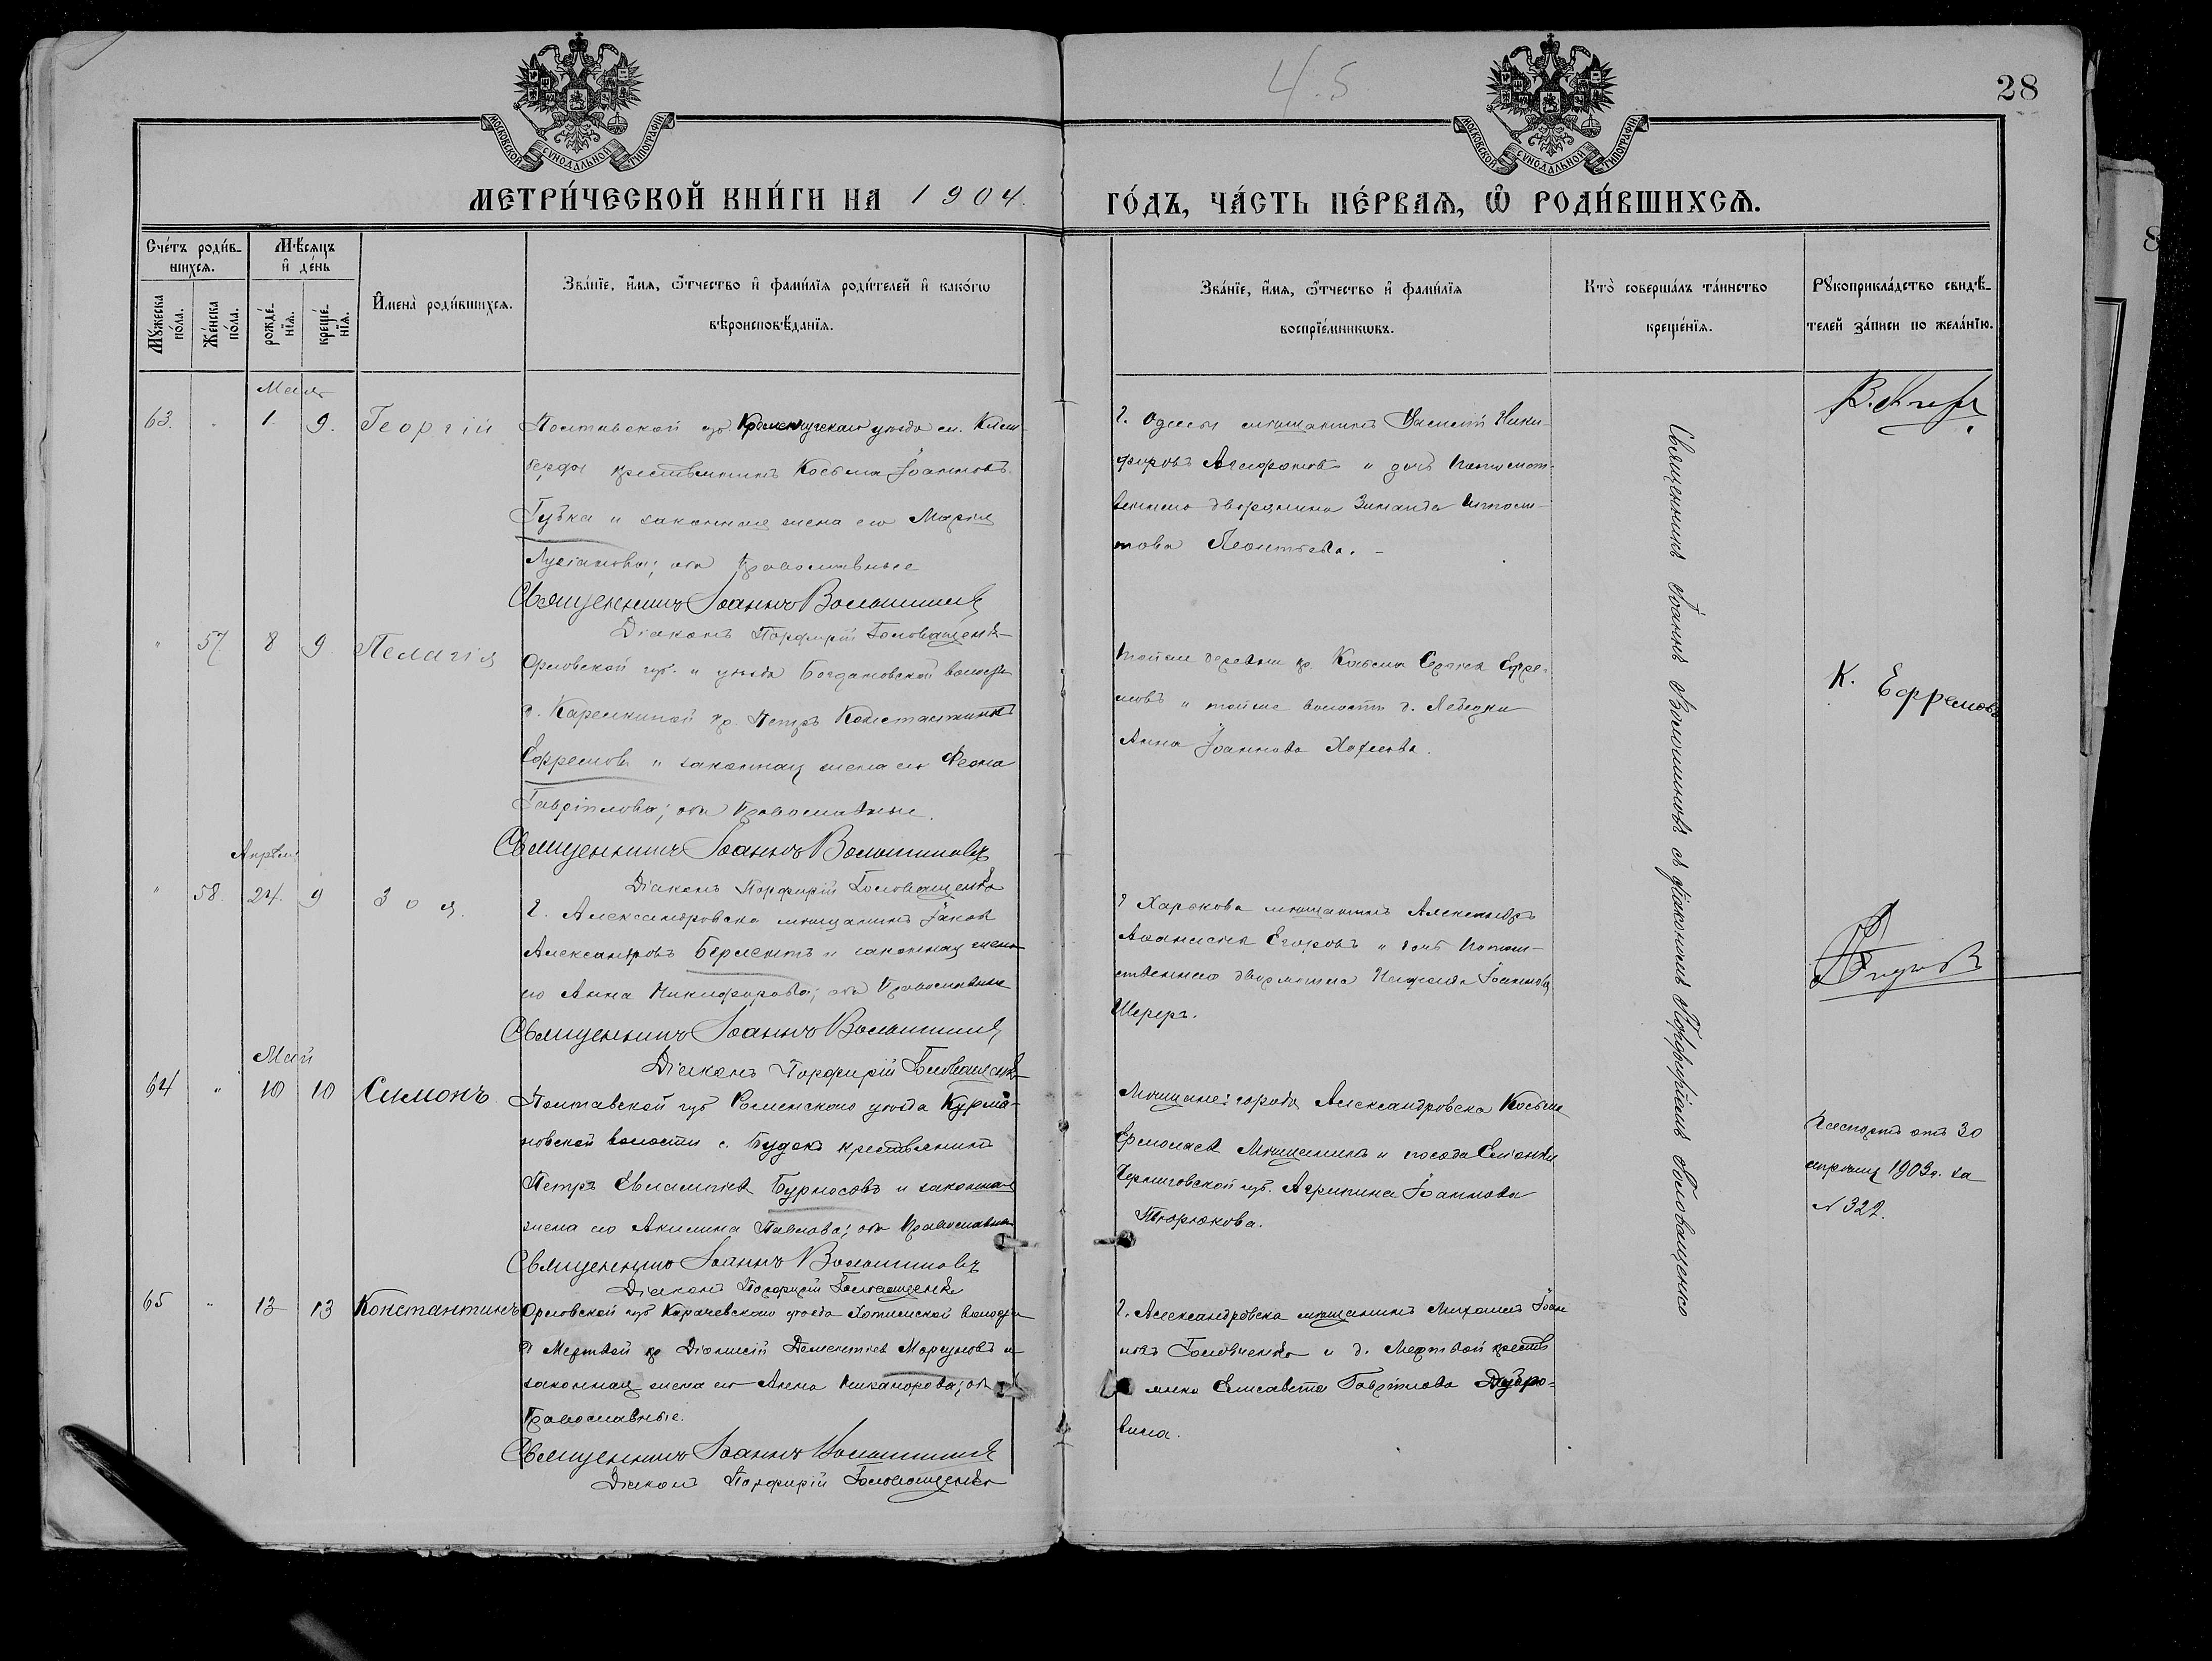 4.5
28
МОСКОВСКОЙ СУНОДАЛЬНОЙ ТИПОГРАФІИ
МОСКОВСКОЙ СУНОДАЛЬНОЙ ТИПОГРАФІИ
МЕТРИ́ЧЕСКОЙ КНИ́ГИ НА 1904.
ГО́ДЪ, ЧА́СТЬ ПЕ́РВАѦ, Ѽ РОДИ́ВШИХСѦ.
Сче́тъ роди́в-
шихсѧ.
Мꙋ́жеска по́ла.
Же́нска по́ла.
Мѣ́сѧцъ и҆ де́нь
рожде́-нїѧ.
креще́-нїѧ.
И҆мена̀ роди́вшихсѧ.
Зва́нїе, и҆́мѧ, ѻ҆́тчество и҆ фами́лїѧ роди́телей и҆ како́гѡ
вѣроисповѣ́данїѧ.
Зва́нїе, и҆́мѧ, ѻ҆́тчество и҆ фами́лїѧ
воспрїе́мникѡвъ.
Кто̀ соверша́лъ та́инство
креще́нїѧ.
Рꙋкоприкла́дство свидѣ́-
телей за́писи по жела́нїю.
Мая
63. " 1. 9. Георгій
Полтавской губ Кременчугскаго уѣзда м. Келе-
берды крестьянинъ Косьма Іоанновъ
Губка и законная жена его Марія
православные
Священникъ Іоаннъ Волошиновъ
Діаконъ Порфирій Головащенко
г. Одессы мѣщанинъ Василій Ники-
форовъ Агафоновъ и дочь потомст-
веннаго дворянина Зинаида
Леонтьева.
" 57 8 9. Пелагія
Орловской губ. и уѣзда Богдановской волости
д. Карелкиной кр. Петръ Константиновъ
Ефремовъ и законная жена его
Гавріилова; оба православные.
Священникъ Іоаннъ Волошиновъ
Діаконъ Порфирій Головащенко
той же деревни кр. Косьма Ефре-
мовъ и той же волости д. Лебедки
Анна Іоаннова
К. Ефремовъ
Апрѣля
" 58. 24. 9 Зоя.
г. Александровска мѣщанинъ Іаковъ
Александровъ и законная жена
его Анна Никифорова; оба православные
Священникъ Іоаннъ Волошиновъ
Діаконъ Порфирій Головащенко
г Харькова мѣщанинъ Александръ
Егоровъ и дочь потом-
ственнаго дворянина Іоаннова
Шереръ.
Май
64 " 10 10 Симонъ
Полтавской губ Роменскаго уѣзда Курма-
новской волости с. Будокъ крестьянинъ
Петръ Евлампіевъ Бурносовъ и законная
жена его Акилина Павлова; оба православные
Священникъ Іоаннъ Волошиновъ
Діаконъ Порфирій Головащенко
Мѣщане: города Александровска Косьма
Ермолаевъ и посада
Черниговской губ. Агрипина Іоаннова
Паспортъ отъ 30
апрѣля 1903г. за
№ 322.
65 " 13 13 Константинъ
Орловской губ Карачевскаго уѣзда волости
д Мертвой кр Діонисій Дементіевъ и
законная жена его Анна Никанорова; оба
Православные.
Священникъ Іоаннъ Волошиновъ
Діаконъ Порфирій Головащенко
г. Александровска мѣщанинъ Михаилъ Іоан
новъ и д. Мертвой кресть
янка Елисавета Гавріилова Дубро-
вина.
Священникъ Іоаннъ Волошиновъ съ діакономъ Порфиріемъ Головащенко